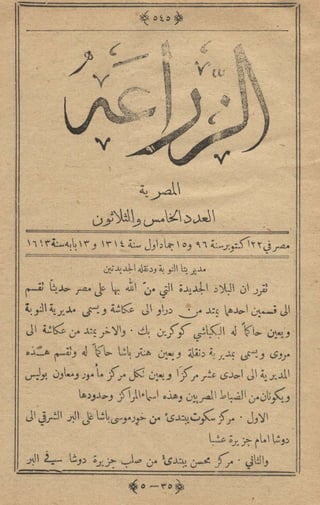 ﴿٥٤٥﴾
الزراعة
المصرية
العدد الخامس والثلاثون
مصر في ٢٢ اكتوبر سنة ٩٦ و١٥ جماد اول سنة ١٣١٤ و ١٣ بابه سنة ١٦١٣
مديريتا النوبة ودنقله الجديدتين
تقرر ان البلاد الجديدة التي منّ الله بها على مصر حديثًا تقسم
الى قسمين احدها يمتد من دراو الى عكاشة ويسمى مديرية النوبة
ويعين حاكمًا له البكباشي كوكرين بك · والاخر يمتد من عكاشة الى
مروى ويسمى بمديرية دنقلة ويعين هنتر باشا حاكمًا له وتقسم هذه
المديرية الى احدى عشر مركزًا ويعين لكل مركز مأمور ومعاون بوليس
ويكونان من الضباط المصريين وهذه اسماء المراكز وحدودها
الاول · مركز سكوت يبتدئ من خور موسى باشا على البر الشرقي الى
دوشا امام جزيرة عشبا
والثاني · مركز محسن يبتدئ من صلب جزيرة دوشا في البر
﴿٣٥—٥﴾